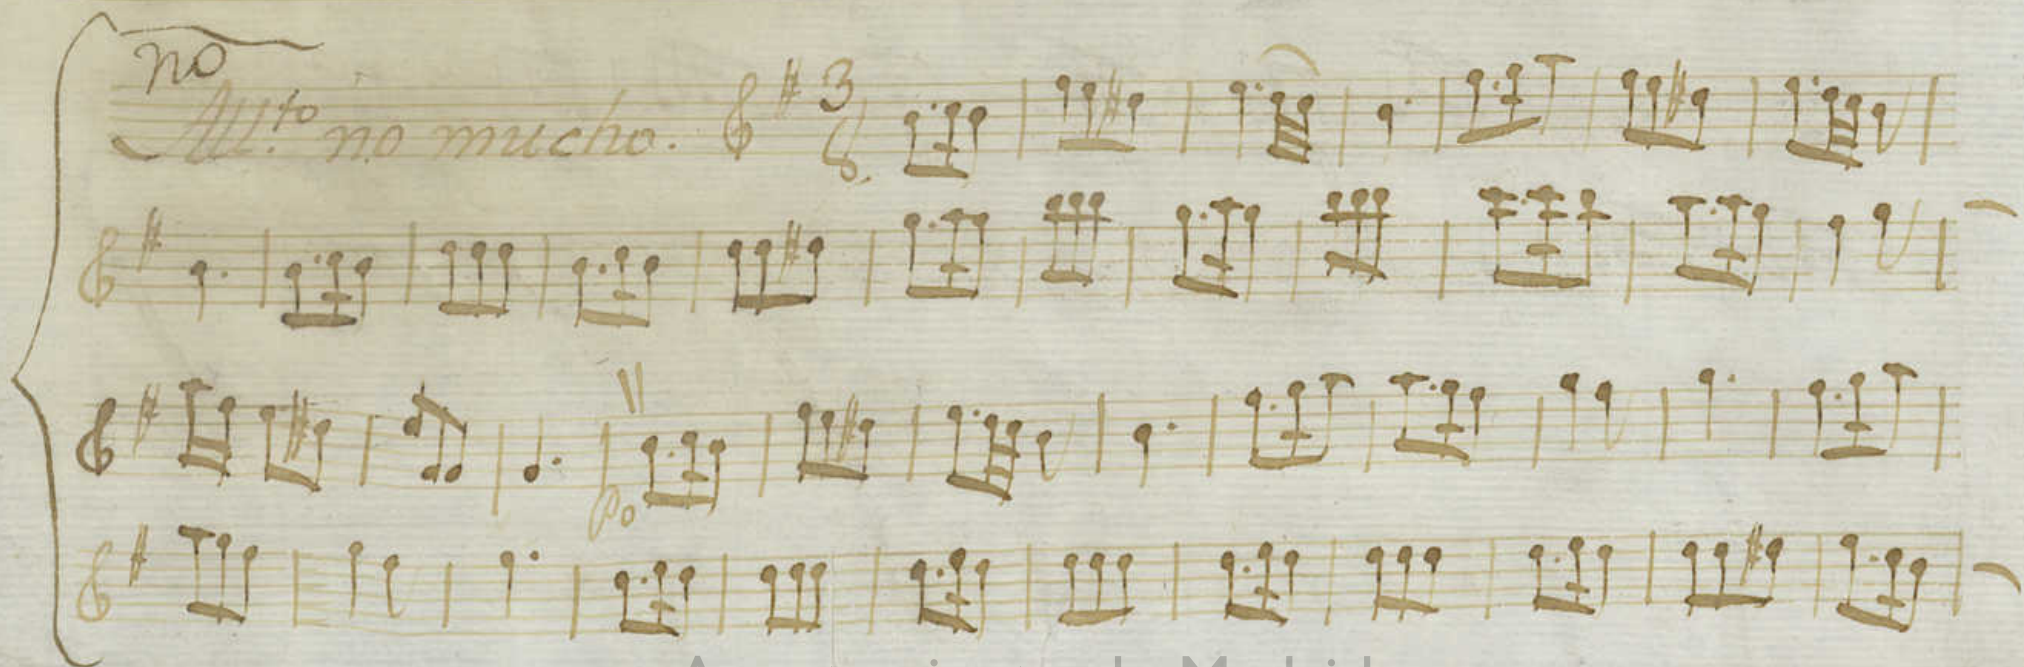 no
All.to no mucho. 3
8
Po